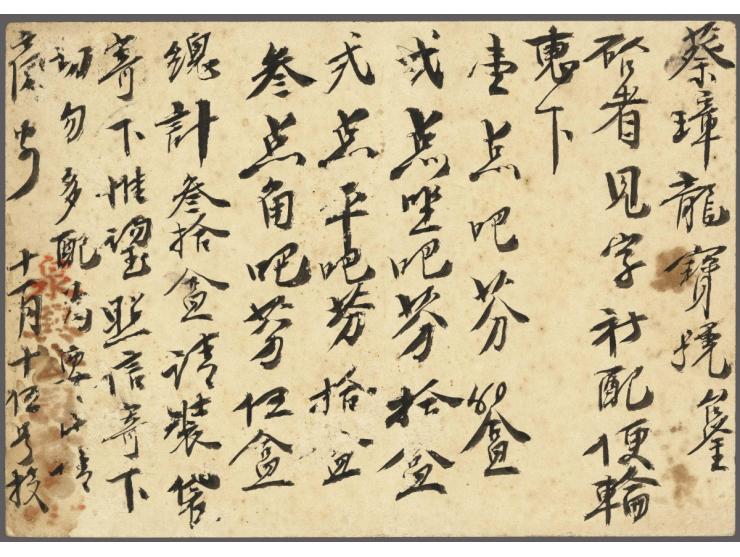 蔡璋龍寶號
啟者見字祈配便輪
惠下
壹点吧芬盒
弍点坐吧芬拾盒
弍点平吧芬拾盒
叁点角吧芬伍盒
總計叁拾盒請裝袋
寄下惟望照信寄下
切勿多配為要
十一月十伍号投
泉興公司